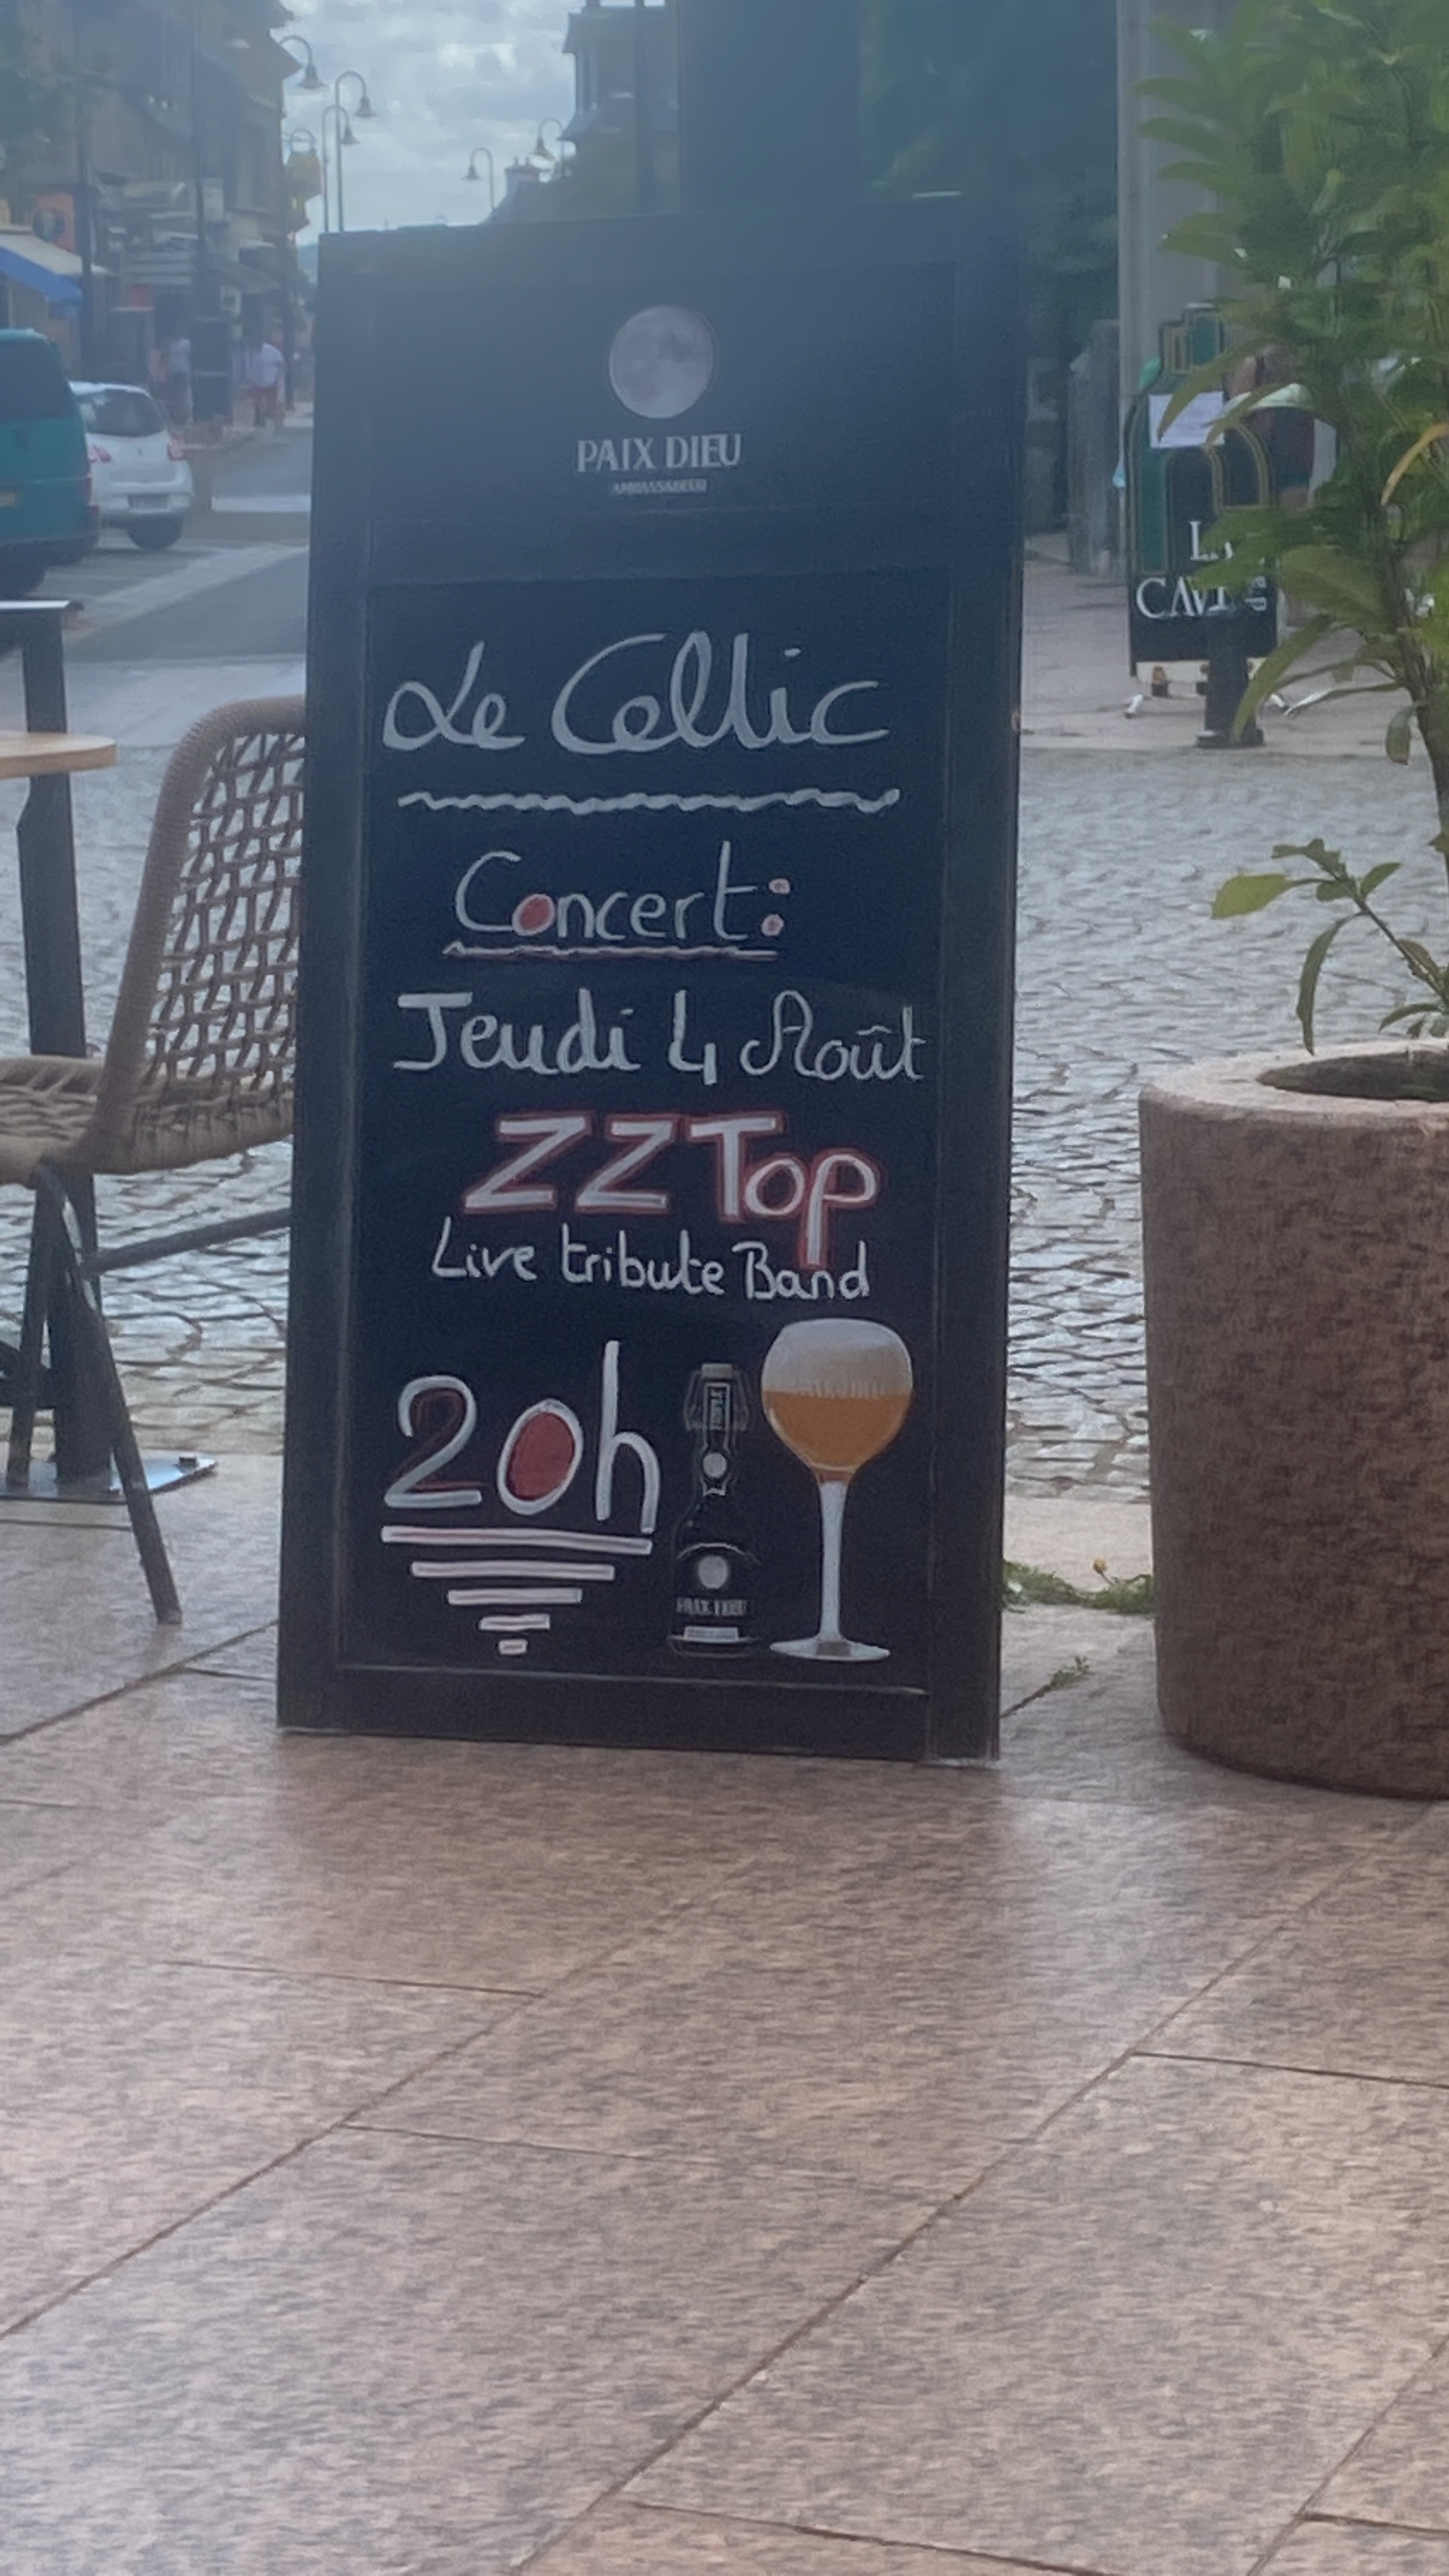 PAIX DIEU
AMBASSADEUR
Le Celtic
Concert:
Jeudi 4 Août
ZZ Top
Live tribute Band
20h
PAIX DIEU